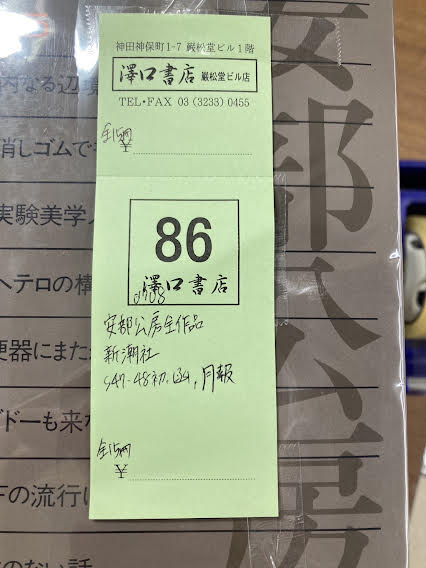 神田神保町1-7 巌松堂ビル1階
澤口書店 巌松堂ビル店
TEL・FAX 03 (3233) 0455
全15冊
¥
86
澤口書店
0708
安部公房全作品
新潮社
S47-48初、函、月報
全15冊
¥
安部公房
内なる辺境
消しゴムで
実験美学
ヘテロの構
便器にまたが
ドーも来な
下の流行
のない話